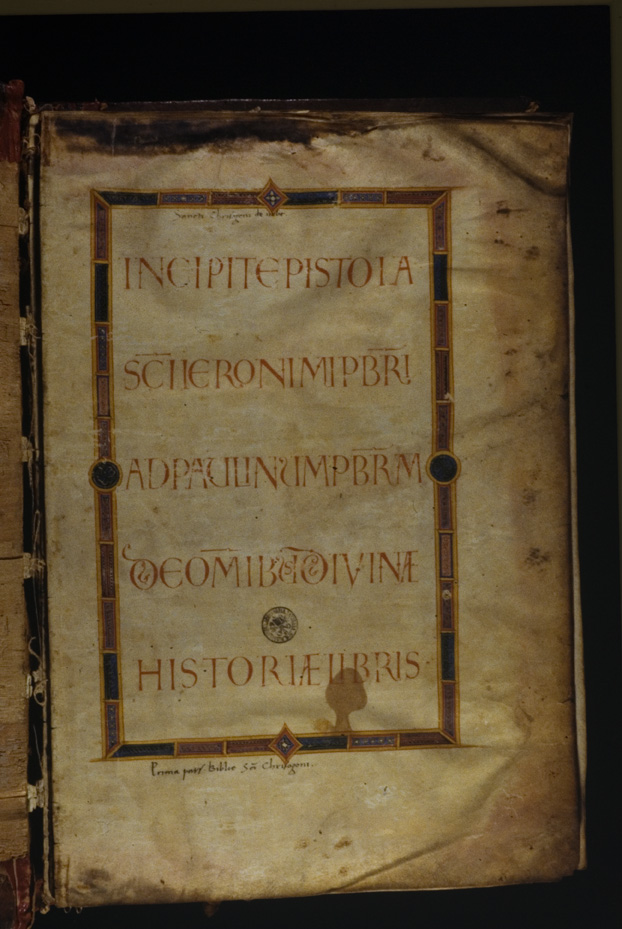 Sancti Chrisogoni de urbe
INCIPIT EPISTOLA
SC̅I HIERONIMI PB̅R̅I
AD PAULINUM PB̅R̅M
DE OM̅IB; DIVINÆ
HISTORIÆ LIBRIS
Prima pars Biblie S̅c̅i Chrisogoni.